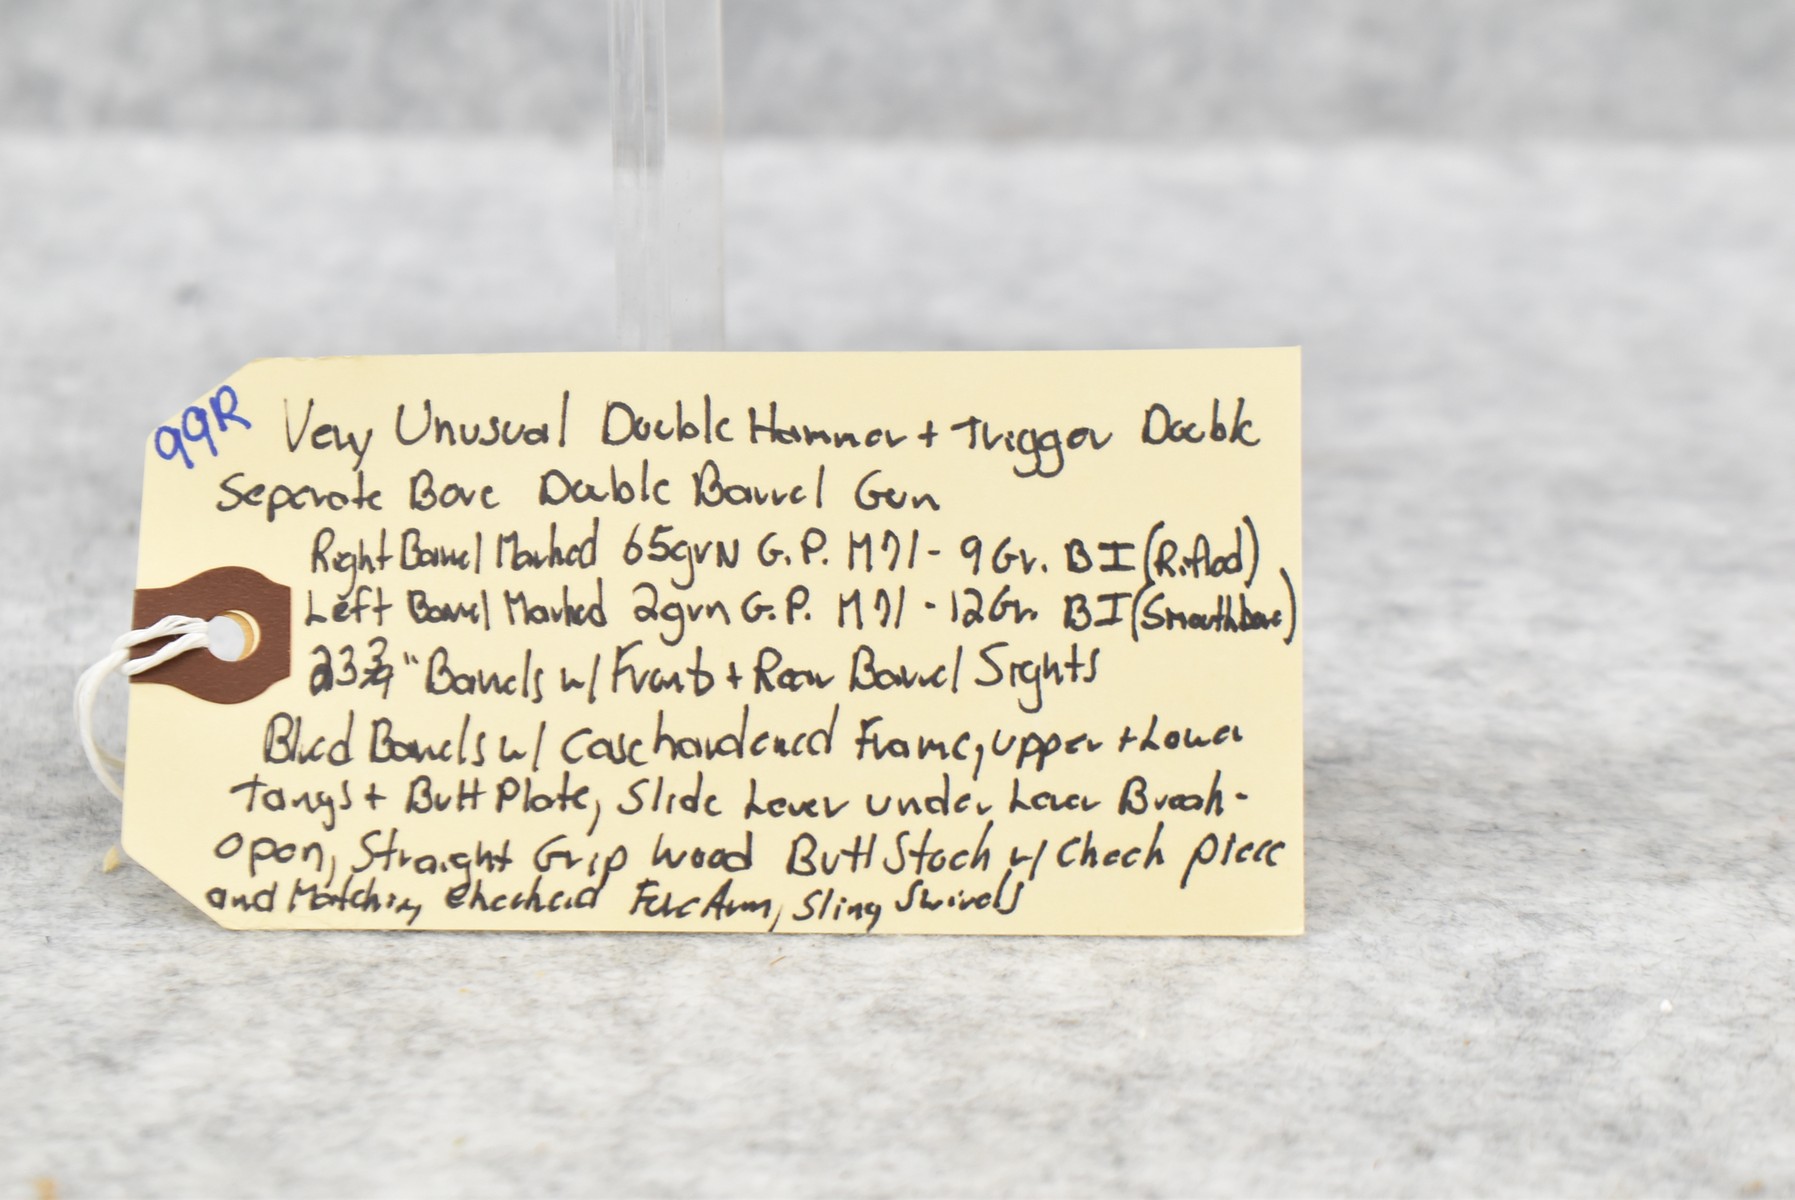 99R
Very Unusual Double Hammer + Trigger Double
Seperate Bore Double Barrel Gun
Right Barrel Marked 65grn G.P. M71 - 9Gr. BI (Rifled)
Left Barrel Marked 2grn G.P. M71 - 12Gr. BI (Smoothbore)
23 3/4" Barrels w/ Front + Rear Barrel Sights
Blued Barrels w/ Casehardened Frame, Upper + Lower
Tangs + Butt Plate, Slide Lever under Lever Break-
Open, Straight Grip Wood Butt Stock w/ Cheek piece
and Matching Checkered ForeArm, Sling Swivels